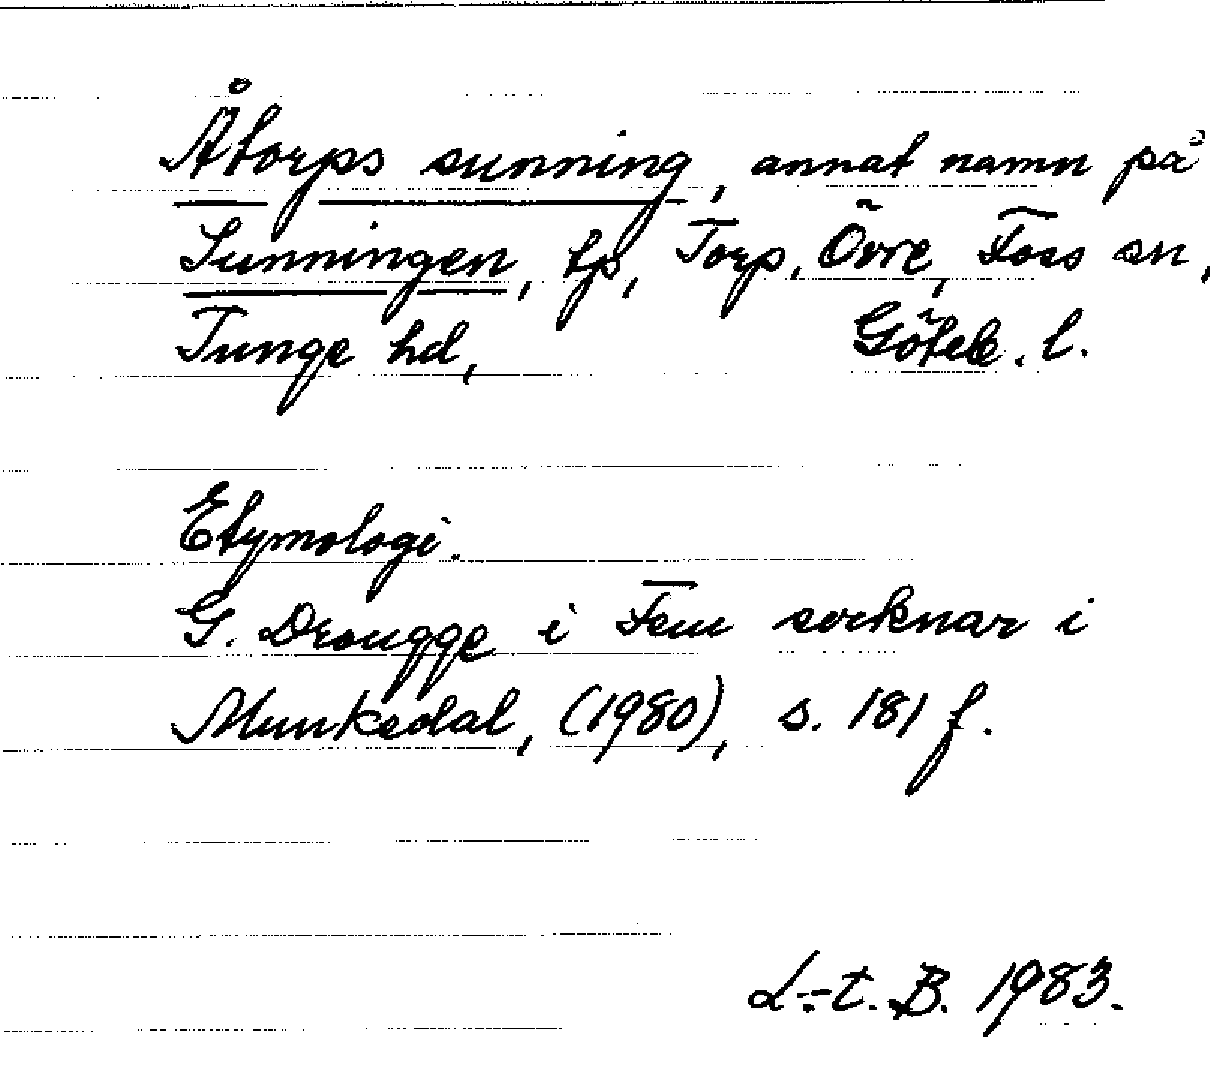 Åtorps sunning, annat namn på
Sunningen, tp, Torp, Övre, Foss sn,
Tunge hd, Göteb. l.
Etymologi.
G. Drougge i Fem socknar i
Munkedal, (1980), s. 181 f.
B. 1983.